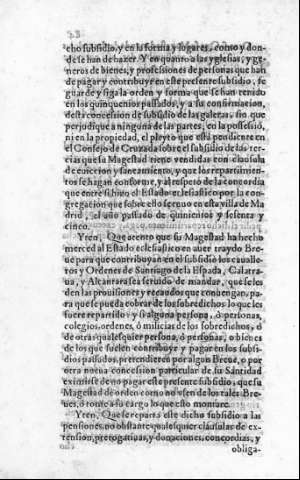 cho subsidio, y en la forma y lugares, como y don-
de se han de hazer. Y en quanto a las yglesias, y ge-
neros de bienes, y professiones de personas que han
de pagar y contribuyr en este presente subsidio, se
guarde y siga la orden y forma que se han tenido
en los quinquenios passados, y a su confirmacion,
desta concession de subsidio de las galeras, sin que
perjudique a ninguna de las partes, en la possessiō,
ni en la propiedad, el pleyto que està pendiente en
el Consejo de Cruzada sobre el subsidio de las ter-
cias que su Magestad tiene vendidas con clausula
de euiccion y saneamiento, y que los repartimien-
tos se hagan conforme, y al respecto de la concordia
que entre si hizo el Estado eclesiastico por la con-
gregacion que sobre ello se tuuo en esta villa de Ma
drid, el año passado de quinientos y sesenta y
cinco.
Yten, Que atento que su Magestad ha hecho
merced al Estado eclesiastico en auer traydo Bre-
ue para que contribuyan en el subsidio los caualle-
ros y Ordenes de Santiago de la Espada, Calatra-
ua, y Alcantara sea seruido de mandar, que se les
den las prouisiones y recaudos que conuengan, pa-
ra que se pueda cobrar de los sobredichos lo que les
fuere repartido: y si alguna persona, ò personas,
colegios, ordenes, ò milicias de los sobredichos, ò
de otras qualesquier persona, ò personas, o bienes
de los que suelen contribuyr y pagar en los subsi-
dios passados, pretendieren por algun Breue, o por
otra nueua concession particular de su Santidad
eximirse de no pagar este presente subsidio, que su
Magestad de orden como no vsen de los tales Bre-
ues, ò tome a su cargo lo que esto montare.
Yten, Que se reparta este dicho subsidio a las
pensiones, no obstante qualesquier clausulas de ex-
tension, prerrogatiuas, y donaciones, concordias, y
obliga-